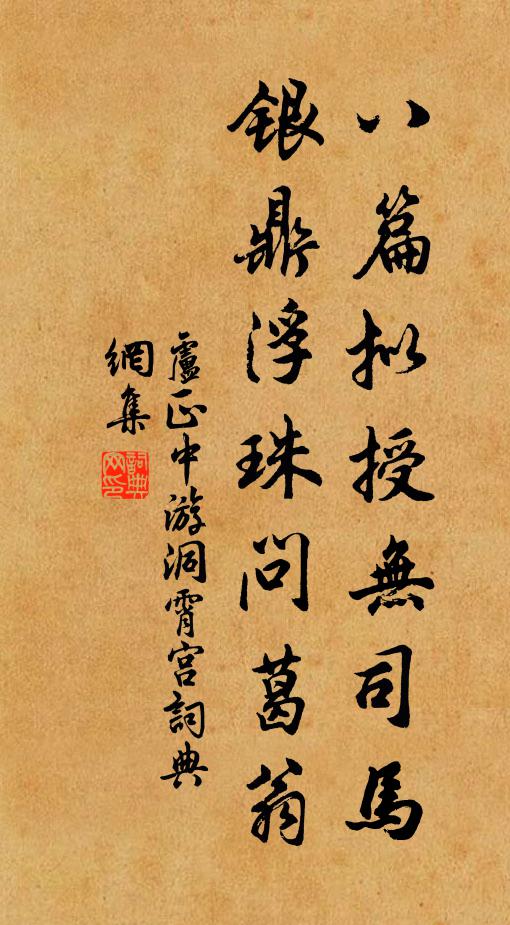 八篇拟授無司馬
銀鼎浮珠問葛翁
盧正中游洞霄宮詞典
網集
詞典
网印